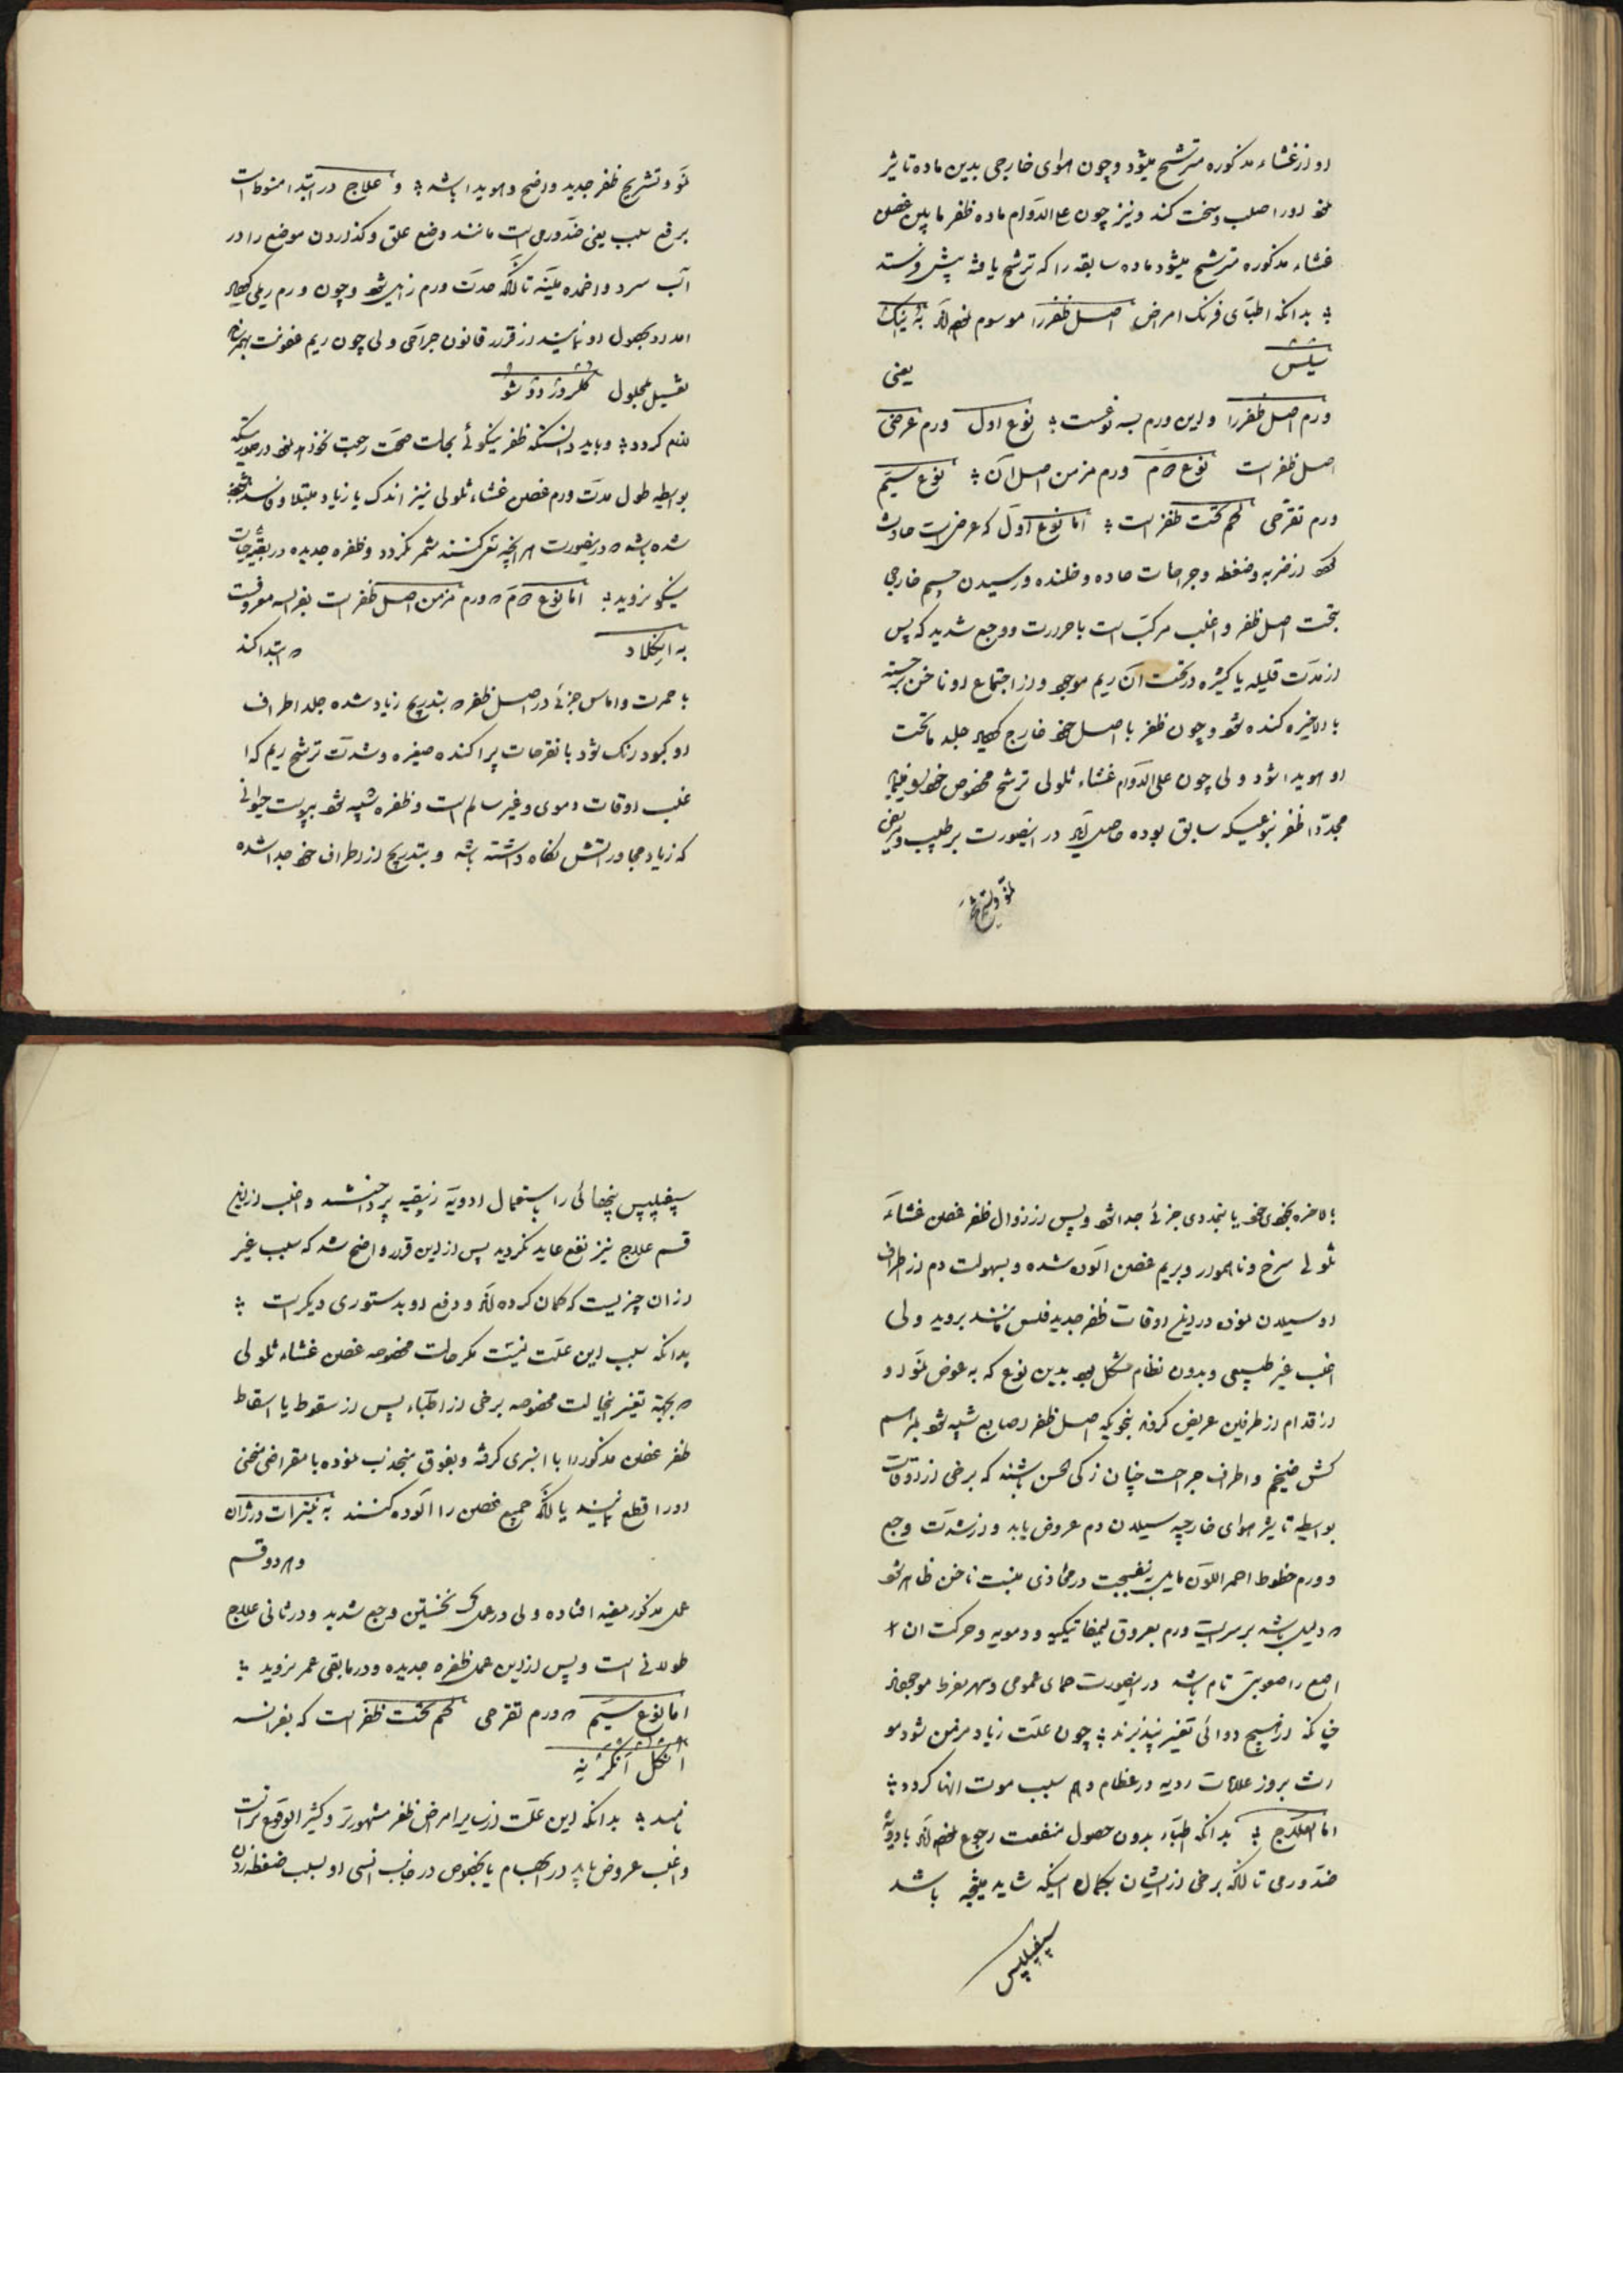 او از غشاء مذکوره مترشح میشود و چون هوای خارجی بدین ماده تاثیر
او را صلب و سخت کند و نیز چون علی الدوام ماده ظفر مابین غصن
غشاء مذکوره مترشح میشود ماده سابقه را که ترشح یافته پیش فرستد
بدانکه اطبای فرنک امراض اصل ظفر را موسوم
یعنی
ورم اصل ظفر را و این ورم بسه نوعست نوع اول ورم عرضی
اصل ظفر است نوع دوم ورم مزمن اصل آن نوع سیم
ورم تقرحی لحم تحت ظفر است اما نوع اول که عرضی است حادث
از ضربه و ضغطه و جراحات حاده و خلنده و رسیدن جسم خارجی
بتحت اصل ظفر و اغلب مرکب است با حرارت و وجع شدید که پس
از مدت قلیله یا کثیره در تحت آن ریم موجود و از اجتماع او ناخن برجسته
بالاخره کنده شود و چون ظفر با اصل خود خارج جلد ماتحت
او هویدا شود ولی چون علی الدوام غشاء ثلولی ترشح مخصوص خود
مجددا ظفر بنوعیکه سابق بوده حاصل آید در اینصورت بر طبیب و مریض
نمو و تشریح
نمو و تشریح ظفر جدید واضح و هویدا باشد و علاج در ابتدا منوط است
برفع سبب یعنی ضد ورمی است مانند وضع علق و کذاردن موضع را در
آب سرد و اضمده ملینه تا آنکه حدت ورم زایل شود و چون ورم ریمی
امداد بحصول او نمایند از قرار قانون جراحی ولی چون ریم عفونت بهمرساند
تغسیل بمحلول کلرور دو شو
لازم کردد و باید دانست که ظفر بنیکوئی بحالت صحت رجعت نخواهد نمود در صورتیکه
بواسطه طول مدت ورم غصن غشاء ثلولی نیز اندک یا زیاد مبتلا و فاسد
شده باشد در اینصورت هر آنچه سعی کنند ثمر نکردد و ظفره جدیده در بقیه حیات
نیکو نروید اما نوع دوم ورم مزمن اصل ظفر است بفرانسه معروفست
به انیکلاد ابتدا کند
با حمرت و اماس جزئی در اصل ظفر بتدریج زیاد شده جلد اطراف
او کبود رنک شود با تقرحات پراکنده صغیره و شدت ترشح ریم که ا
غلب اوقات دموی و غیر سالم است و ظفره شبیه شود بپوست حیوانی
که زیاد مجاور اتش نکاه داشته باشد و بتدریج از اطراف خود جدا شده
بالاخره بخودی خود یا بتمددی جزئی جدا شود و پس از زوال ظفر غصن غشاء
ثلولی سرخ و ناهموار و بریم غصن آلوده شده و بسهولت دم از اطراف
او سیلان نموده در این اوقات ظفر جدید فلس مانند بروید ولی
اغلب غیر طبیعی و بدون نظام مشکل بود بدین نوع که به عوض نمو او
از قدام از طرفین عریض کردد بنحویکه اصل ظفر اصابع شبیه شود براسم
کش ضخیم و اطراف جراحت چنان زکی الحس باشند که برخی از اوقات
بواسطه تاثیر هوای خارجیه سیلان دم عروض یابد و از شدت وجع
و ورم خطوط احمر اللون مایل به بنفسجیت در محاذی منبت ناخن ظاهر شود
دلیل باشد بر سرایت ورم بعروق لیمفاتیکیه و دمویه و حرکت ان
اصبع را صعوبتی تام باشد در اینصورت حمای عمومی و سهر مفرط موجود
چنانکه از هیچ دوائی تغیر نپذیرند چون علت زیاد مزمن شود مو
رث بروز علامات ردیه در عظام و هم سبب موت انها کردد
اما العلاج بدانکه اطباء بدون حصول منفعت رجوع نموده اند بادویه
ضد ورمی تا آنکه برخی از ایشان بکمان اینکه شاید نتیجه باشد
سیفیلیس
سیفیلیس پنهانی را باستعمال ادویه زیبقیه پرداختند و اغلب از این
قسم علاج نیز نفع عاید نکردید پس از این قرار واضح شد که سبب غیر
از ان چیزیست که کمان کرده اند و دفع او بدستوری دیکر است
بدانکه سبب این علت نیست مکر حالت مخصوصه غصن غشاء ثلولی
بجهة تغییر اینحالت مخصوصه برخی از اطباء پس از سقوط یا اسقاط
ظفر غصن مذکور را با انبری کرفته و بفوق منجذب نموده با مقراض منحنی
او را قطع نمایند یا آنکه جمیع غصن را آلوده کنند به نیترات دارژان
و هر دو قسم
عمل مذکور مفید افتاده ولی در عمل نخستین وجع شدید و در ثانی علاج
طولانی است و پس از این عمل ظفره جدیده در مابقی عمر نروید
اما نوع سیم ورم تقرحی لحم تحت ظفر است که بفرانسه
انکل انکرنه
نامند بدانکه این علت از سایر امراض ظفر مشهورتر و کثیر الوقوع تر است
و اغلب عروض یابد در ابهام پا بخصوص در جانب انسی او بسبب ضغطه زدن